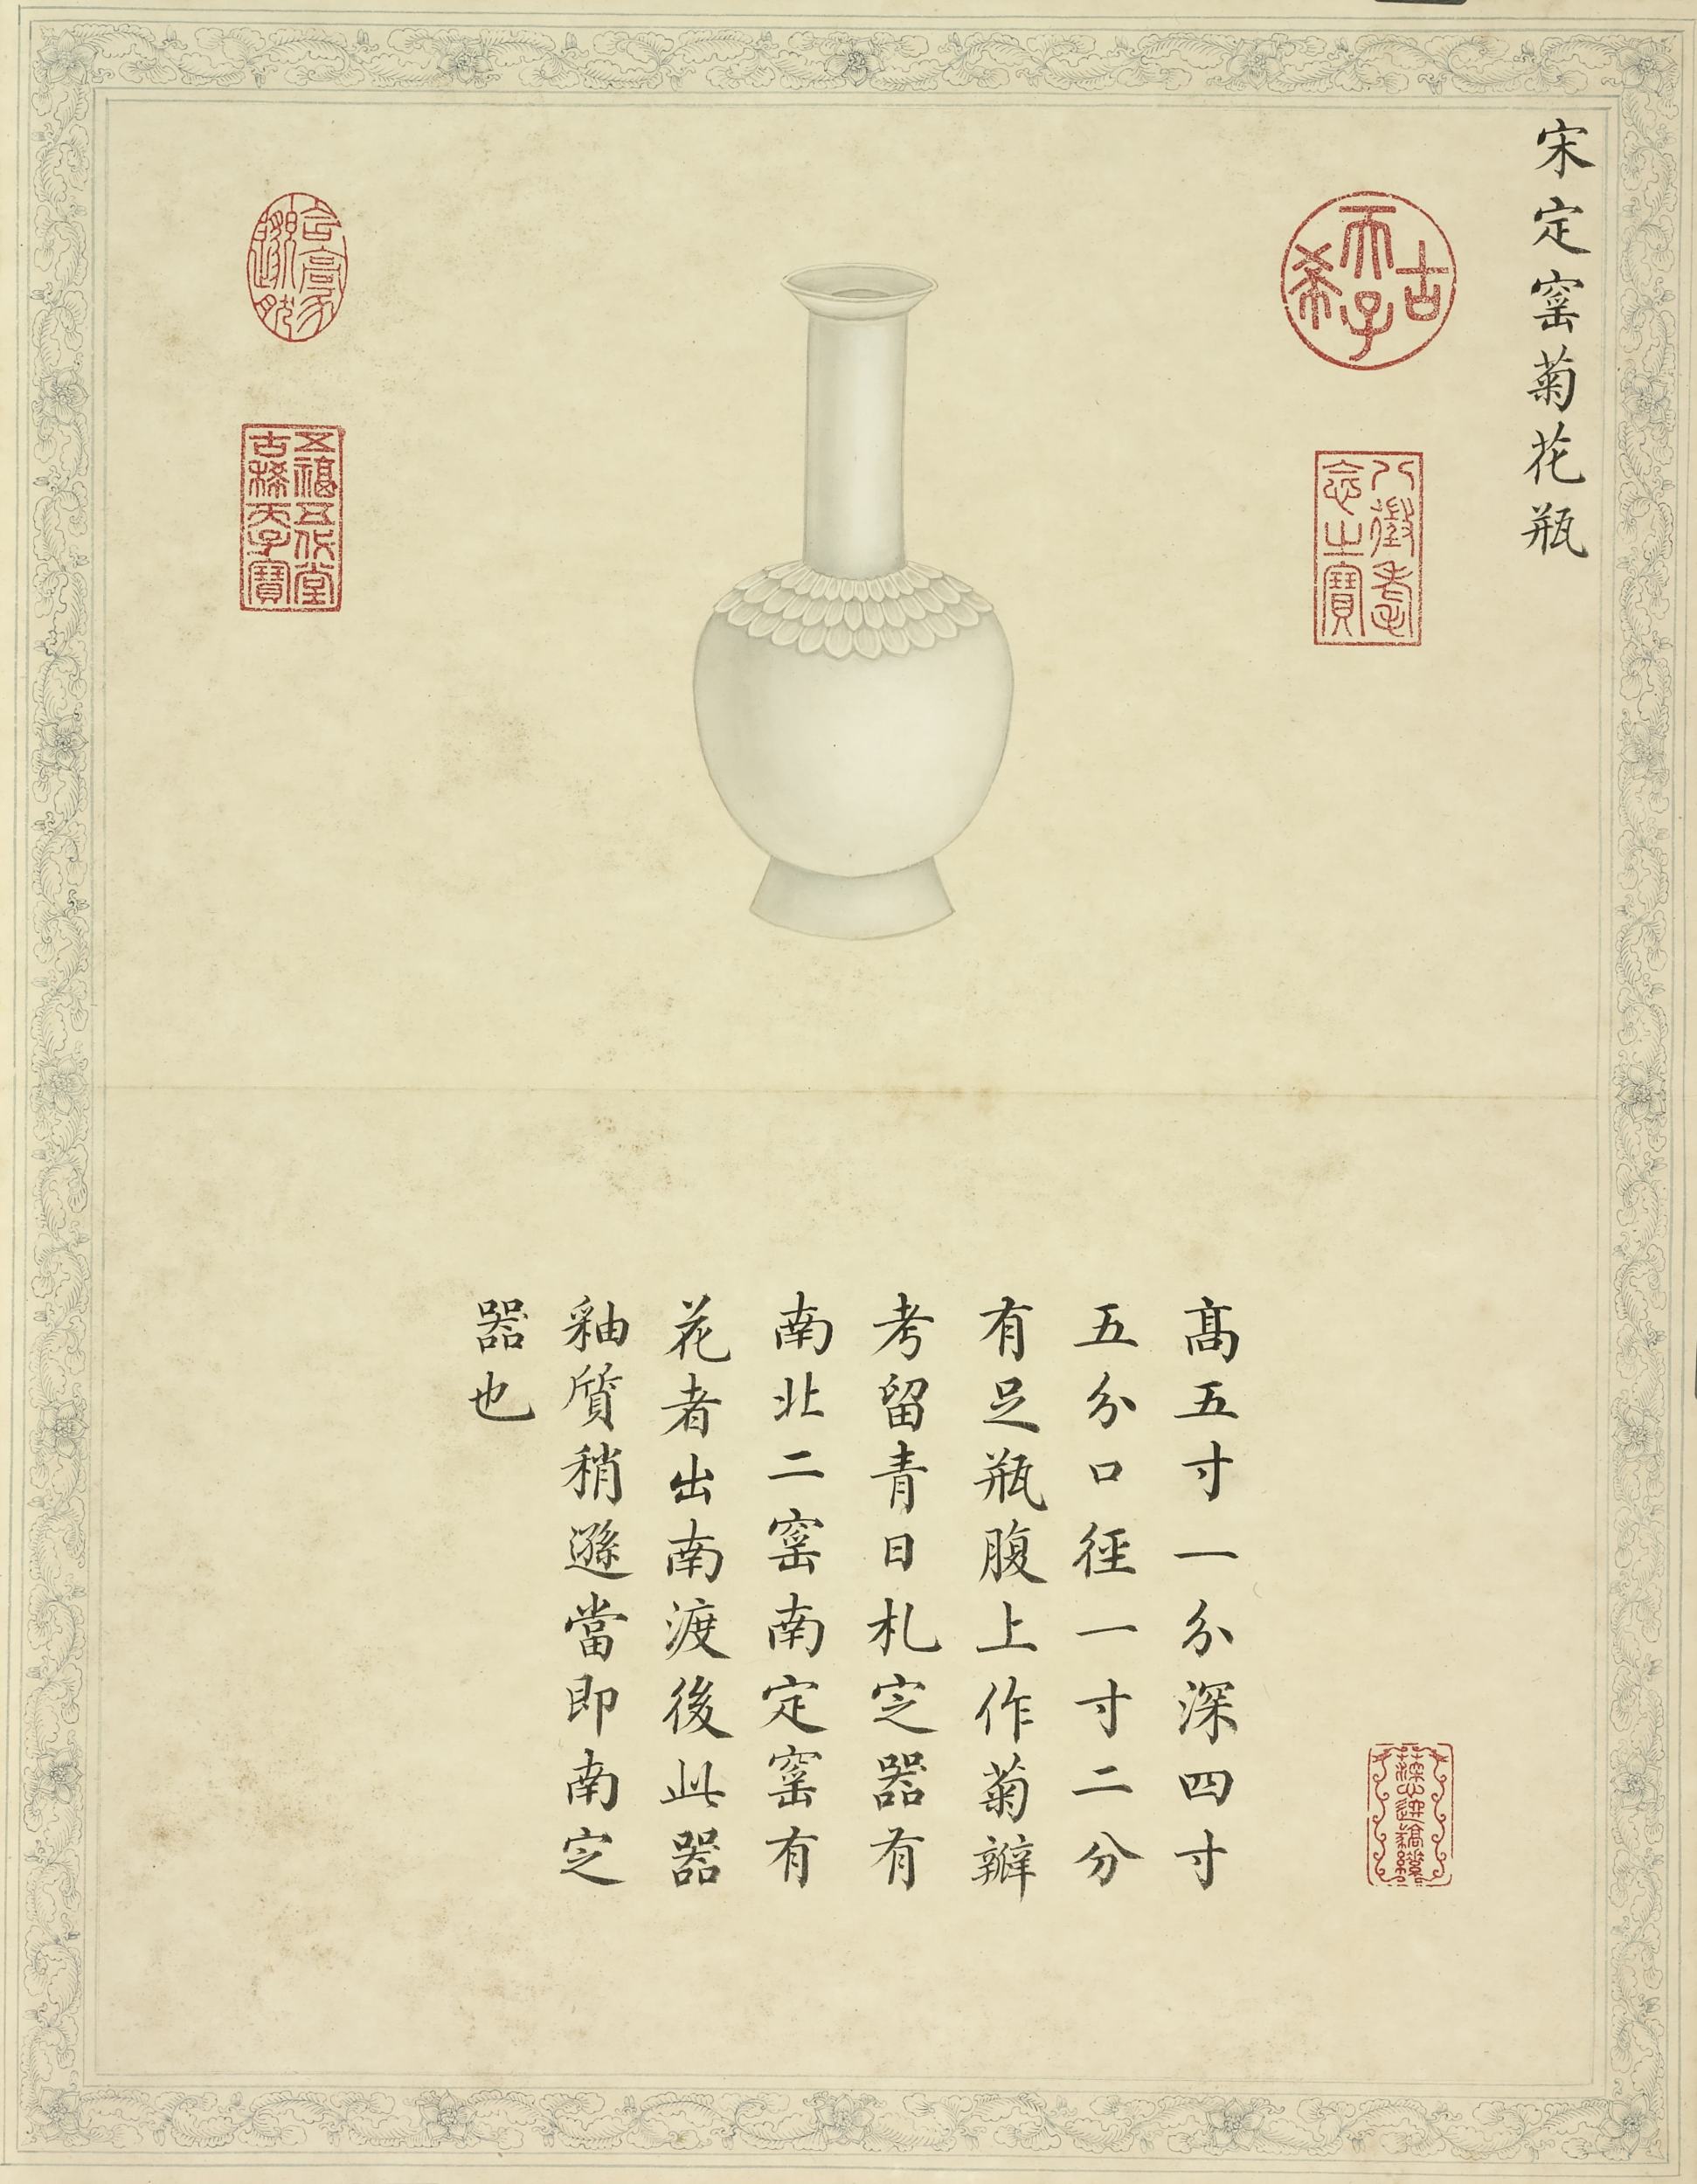 宋定窰菊花瓶
古希天子
八徵耄念之寶
高五寸一分深四寸
五分口徑一寸二分
有足瓶腹上作菊瓣
考留青日札定器有
南北二窰南定窰有
花者出南渡後此器
釉質稍遜當即南定
器也
五福五代堂古稀天子寶